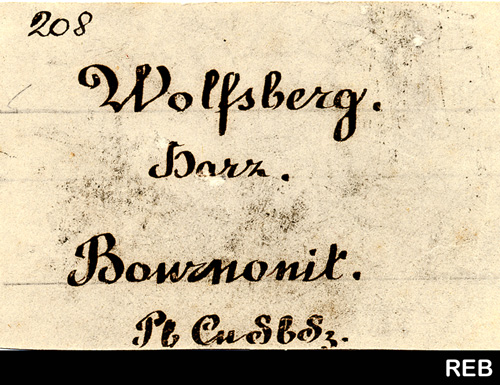 208
Wolfsberg.
Harz.
Bournonit.
Pb Cu Sb S3.
REB